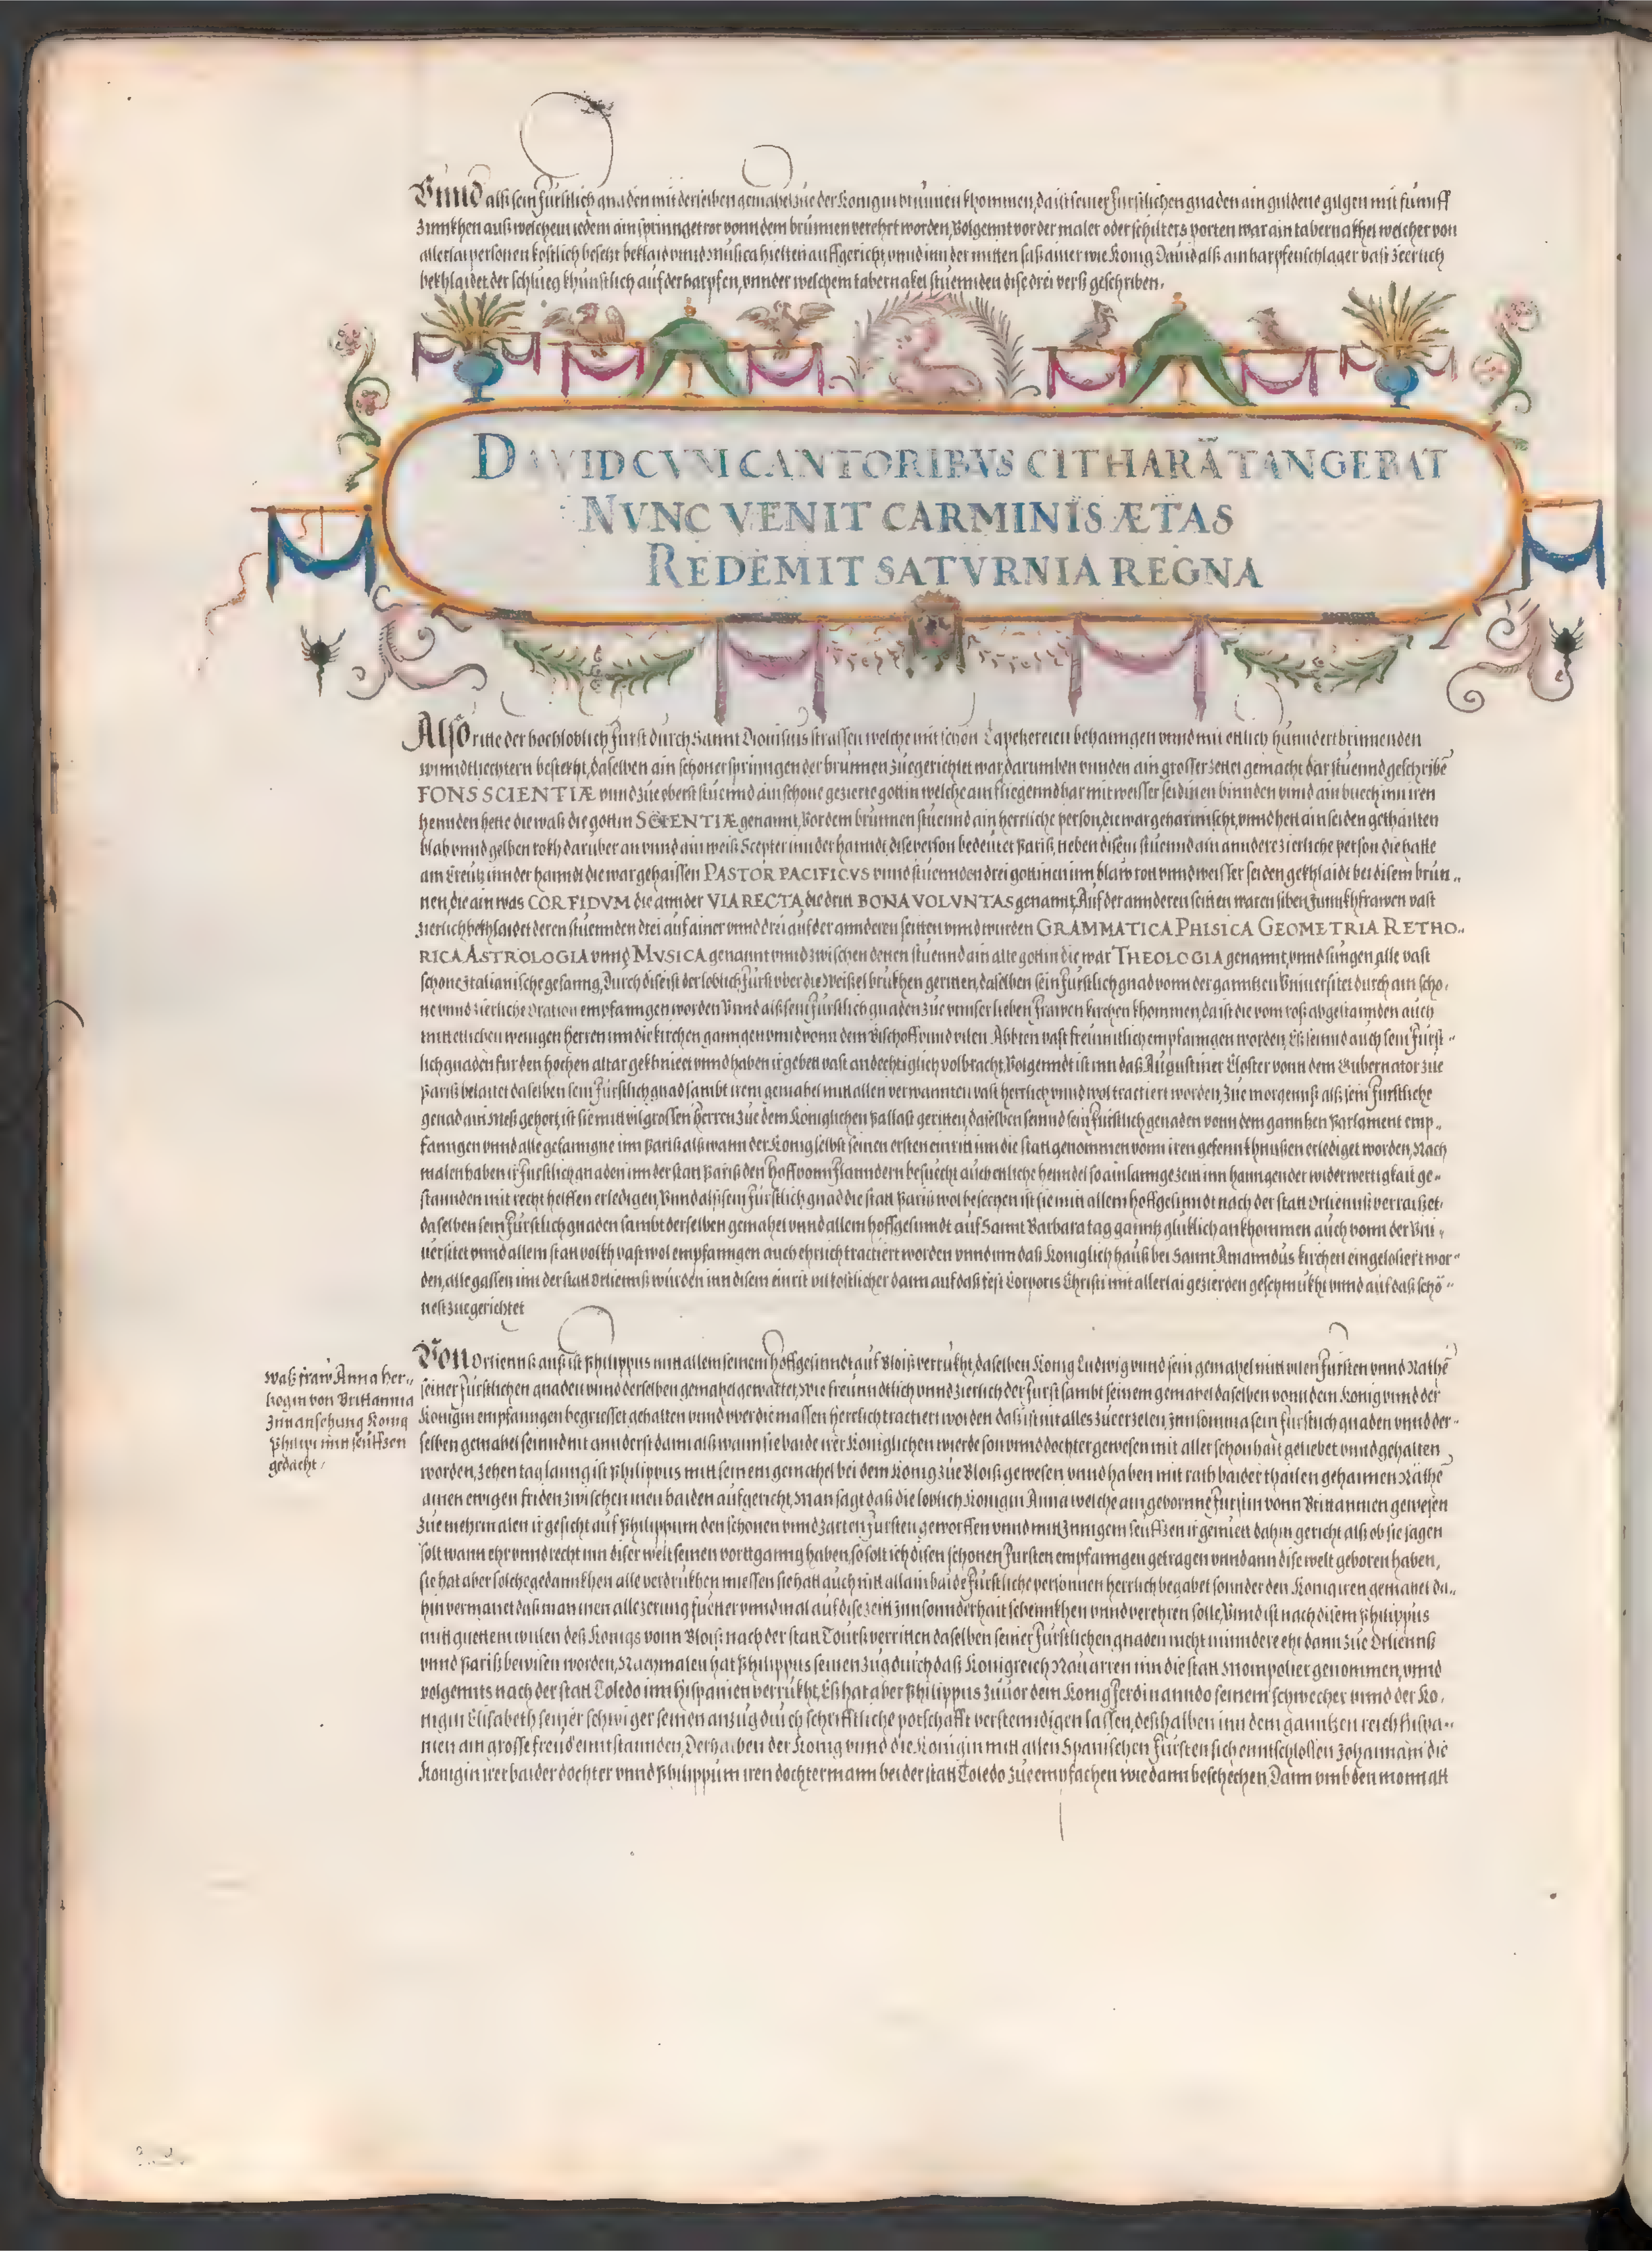 Vnnd alß sein Fürstlich gnaden mit derselben gemahel zue der Königin brunnen khommen, da ist seiner Fürstlichen gnaden ain guldene gilgen mit fünff
Zinnkhen auß welchem iedem ain sprinnget ror vonn dem brunnen verehrt worden, Volgennt vor der maler oder schilters porten war ain tabernakhel welcher von
allerlai personen kostlich besetzt beklaid vnnd Musica hielten auffgericht, vnnd inn der mitten saß ainer wie König Dauid alß ain harpfenschlager vast zierlich
bekhlaidet der schlueg khünstlich auf der harpfen, vnnder welchem tabernakel stuennden dise drei verß geschriben.
DAVID CVM CANTORIBVS CITHARÃ TANGEBAT
NVNC VENIT CARMINIS ÆTAS
REDEMIT SATVRNIA REGNA
Also ritte der hochloblich Fürst durch Sannt Dionisius strassen welche mit schön Tapetzereien behanngen vnnd mit ettlich hunndert brinnenden
winndtliechtern bestekht, daselben ain schöner springender brunnen zuegerichtet war, darumben vnnden ain grosser zettel gemacht dar stuennd geschribẽ
FONS SCIENTIÆ vnnd zue oberst stuennd ain schöne gezierte göttin welche ain fliegennd har mit weisser seidinen binnden vnnd ain buech inn iren
hennden hette die waß die göttin SCIENTIÆ genannt, Vor dem brunnen stuennd ain herrliche person, die war geharnischt, vnnd hett ain seiden gethailten
blab vnnd gelben rokh darüber an vnnd ain weiß Scepter inn der hanndt, dise person bedeutet Pariß, neben disem stuennd ain anndere zierliche person die hatte
ain Creutz inn der hanndt die war gehaissen PASTOR PACIFICVS vnnd stuennden drei göttinen inn blaw rott vnnd weisser seiden gekhlaidt bei disem brun„
nen, die ain was COR FIDVM die annder VIA RECTA die dritt BONA VOLVNTAS genannt, Auf der annderen seitten waren siben Junnkhfrawen vast
zierlich bekhlaidet deren stuennden drei auf ainer vnnd drei auf der annderen seitten vnnd wurden GRAMMATICA PHISICA GEOMETRIA RETHO„
RICA ASTROLOGIA vnnd MVSICA genannt vnnd zwischen denen stuennd ain alte göttin die war THEOLOGIA genannt, vnnd sungen alle vast
schöne Italianische gesanng, Durch dise ist der loblich Fürst vber die Weißel brukhen geritten, daselben sein Fürstlich gnad vonn der ganntzen Vniuersitet durch ain schö„
ne vnnd zierliche Oration empfanngen worden Vnnd alß sein Fürstlich gnaden zue vnnser lieben Frawen kirchen khommen, da ist die vom roß abgestannden auch
mit ettlichen wenigen Herren inn die kirchen ganngen vnnd vonn dem Bischoff vnnd vilen Äbbten vast freunntlich empfanngen worden, Eß seinnd auch sein Fürst„
lich gnaden für den hochen altar gekhniet vnnd haben ir gebett vast andechtiglich volbracht, Volgenndt ist inn daß Augustiner Closter vonn dem Gubernator zue
Pariß belaitet daselben sein Fürstlich gnad sambt irem gemahel mitt allen verwannten vast herrlich vnnd wol tractiert worden, Zue morgenß alß sein Fürstliche
genad ain Meß gehort, ist sie mitt vil grossen Herren zue dem Königlichen Pallast geritten, daselben seinnd sein Fürstlich genaden vonn dem ganntzen Parlament emp„
fanngen vnnd alle gefanngne inn Pariß alß wann der König selbst seinen ersten einritt inn die statt genommen vonn iren gefennkhnußen erlediget worden, Nach
malen haben ir Fürstlich gnaden inn der statt Pariß den Hoff vonn Flanndern besucht auch ettliche henndel so ain lannge zeit inn hanngender widerwertigkait ge„
stannden mit recht helffen erledigen, Vnnd alß sein Fürstlich gnad die statt Pariß wol besechen ist sie mit allem hoffgesinndt nach der statt Orliennß verraißet,
daselben sein Fürstlich gnaden sambt derselben gemahel vnnd allem hoffgesinndt auf Sannt Barbara tag ganntz glüklich ankhommen auch vonn der Vni„
uersitet vnnd allem statt volkh vast wol empfanngen auch ehrlich tractiert worden vnnd inn daß Königlich hauß bei Sannt Amanndus kirchen eingelosiert wor„
den, alle gassen inn der statt Orliennß wurden inn disem einrit vil kostlicher dann auf daß fest Corporis Christi mit allerlai gezierden geschmukht vnnd auf daß schö„
nest zuegerichtet
Von Orliennß auß ist Philippus mitt allem seinem hoffgesinndt auf Bloiß verrukht, daselben König Ludwig vnnd sein gemahel mitt vilen Fürsten vnnd Räthẽ
seiner Fürstlichen gnaden vnnd derselben gemahel gewarttet, Wie freunndtlich vnnd zierlich der Fürst sambt seinem gemahel daselben vonn dem König vnnd der
Königin empfanngen begriesset gehalten vnnd vber die massen herrlich tractiert worden daß ist nit alles zue erzelen, Inn somma sein Fürstlich gnaden vnnd der„
selben gemahel seinnd nit annderst dann alß wann sie baide irer Königlichen wierde son vnnd dochter gewesen mit aller schonhait geliebet vnnd gehalten
worden, Zehen tag lanng ist Philippus mitt seinem gemahel bei dem König zue Bloiß gewesen vnnd haben mit rath baider thailen gehaimen Räthẽ
ainen ewigen friden zwischen inen baiden aufgericht, Man sagt daß die loblich Königin Anna welche ain geborne Fürstin vonn Brittannien gewesen
zue mehrmalen ir gesicht auf Philippum den schönen vnnd zarten Fürsten geworffen vnnd mitt Innigem seufftzen ir gemuett dahin gericht alß ob sie sagen
solt wann ehr vnnd recht inn diser welt seinen vorttganng haben, so solt ich disen schönen Fürsten empfanngen getragen vnnd ann dise welt geboren haben,
sie hat aber solche gedannkhen alle verdrukhen muessen sie hatt auch nitt allain baide Fürstliche personnen herrlich begabet sonnder den König iren gemahel da„
hin vermanet daß man inen alle zerung fuetter vnnd mal auf dise zeitt Inn sonnderhait schennkhen vnnd verehren solle, Vnnd ist nach disem Philippus
mitt guettem willen deß Königs vonn Bloiß nach der statt Tourß verritten daselben seiner Fürstlichen gnaden nicht minndere ehr dann zue Orliennß
vnnd Pariß bewisen worden, Nachmalen hat Philippus seinen zug durch daß Königreich Nauarren inn die statt Mompolier genommen, vnnd
volgennts nach der statt Toledo inn Hispanien verrukht, Eß hat aber Philippus zuuor dem König Ferdinanndo seinem schwecher vnnd der Kö„
nigin Elisabeth seiner schwiger seinen anzug durch schrifftliche potschafft verstenndigen lassen, deßhalben inn dem ganntzen reich Hispa„
nien ain grosse freud enntstannden, Derhalben der König vnnd die Königin mitt allen Spanischen Fürsten sich enntschlossen Johannam die
Königin irer baider dochter vnnd Philippum iren dochtermann bei der statt Toledo zue empfachen wie dann beschechen, Dann vmb den monnatt
Waß fraw Anna her„
tzogin von Brittannia
Inn ansehung König
Philippi inn seufftzen
gedacht.